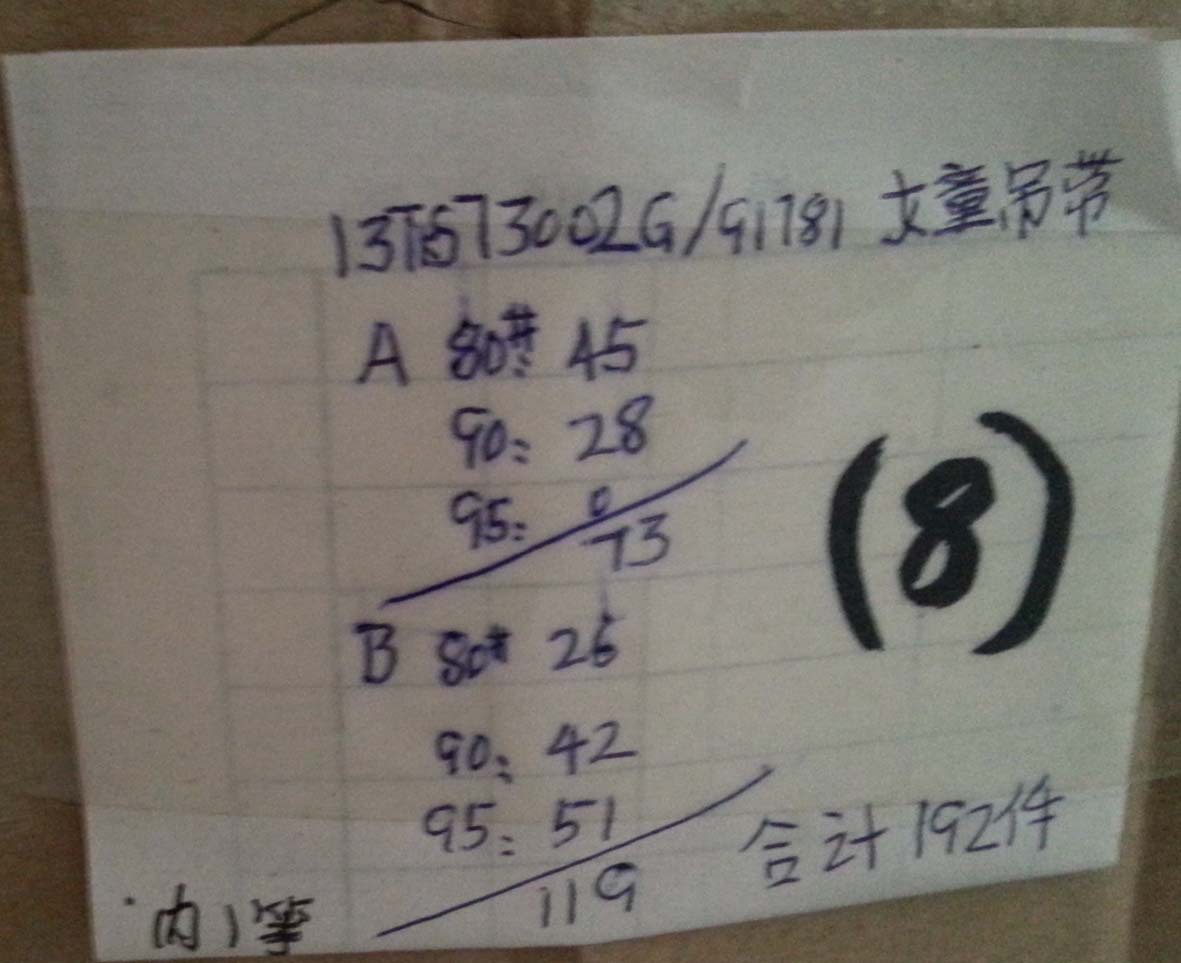 13TS73002G/91781 女童吊带
A 80# 45
90: 28
95: 0
73
(8)
B 80# 26
90: 42
95: 51
119
合计192件
内1等